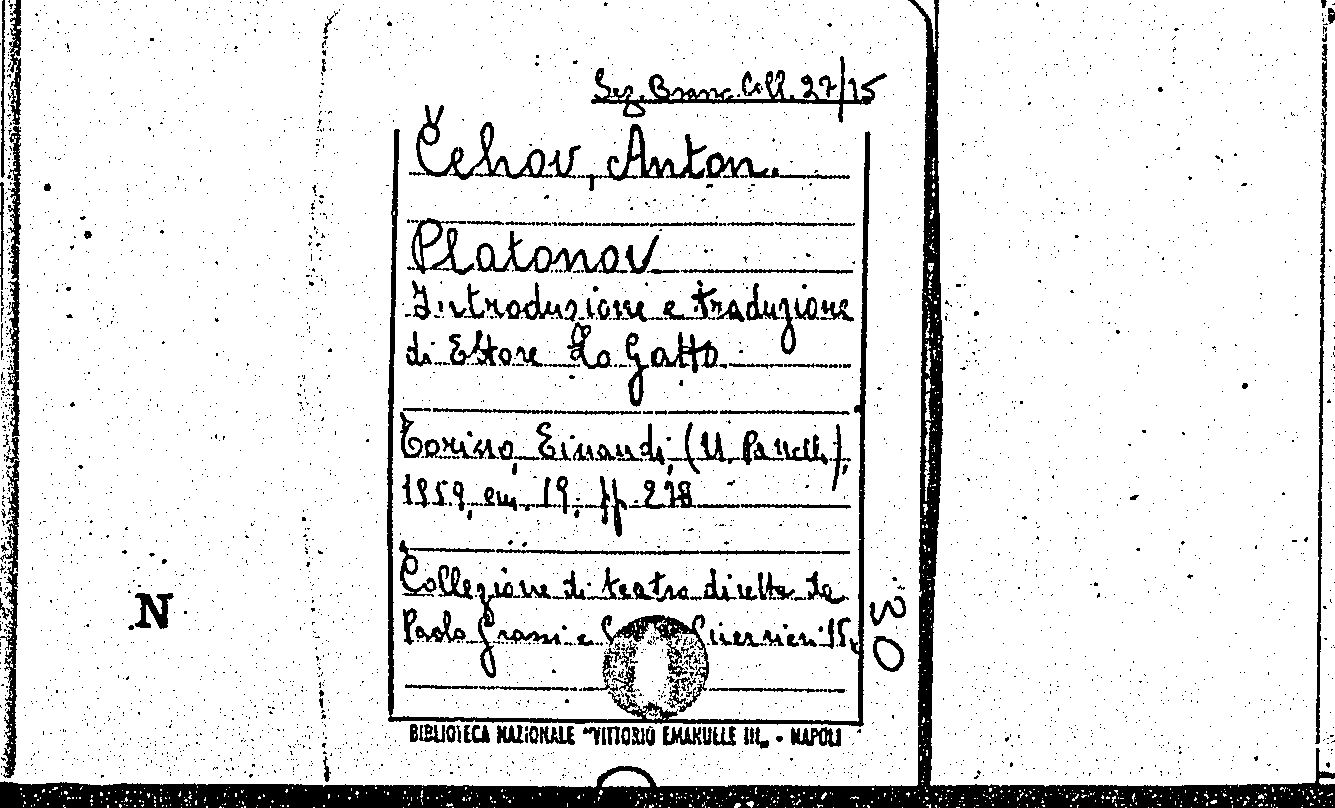 Sez. Branc. Coll. 27/15
Čehov, Anton.
Platonov
Introduzione e traduzione
di Ettore Lo Gatto.
Torino, Einaudi, (U. Panelli),
1959, cm. 19, pp. 218
Collezione di teatro diretta da
Paolo Grassi e Guerrieri 15.
30
N
BIBLIOTECA NAZIONALE "VITTORIO EMANUELE III„ - NAPOLI